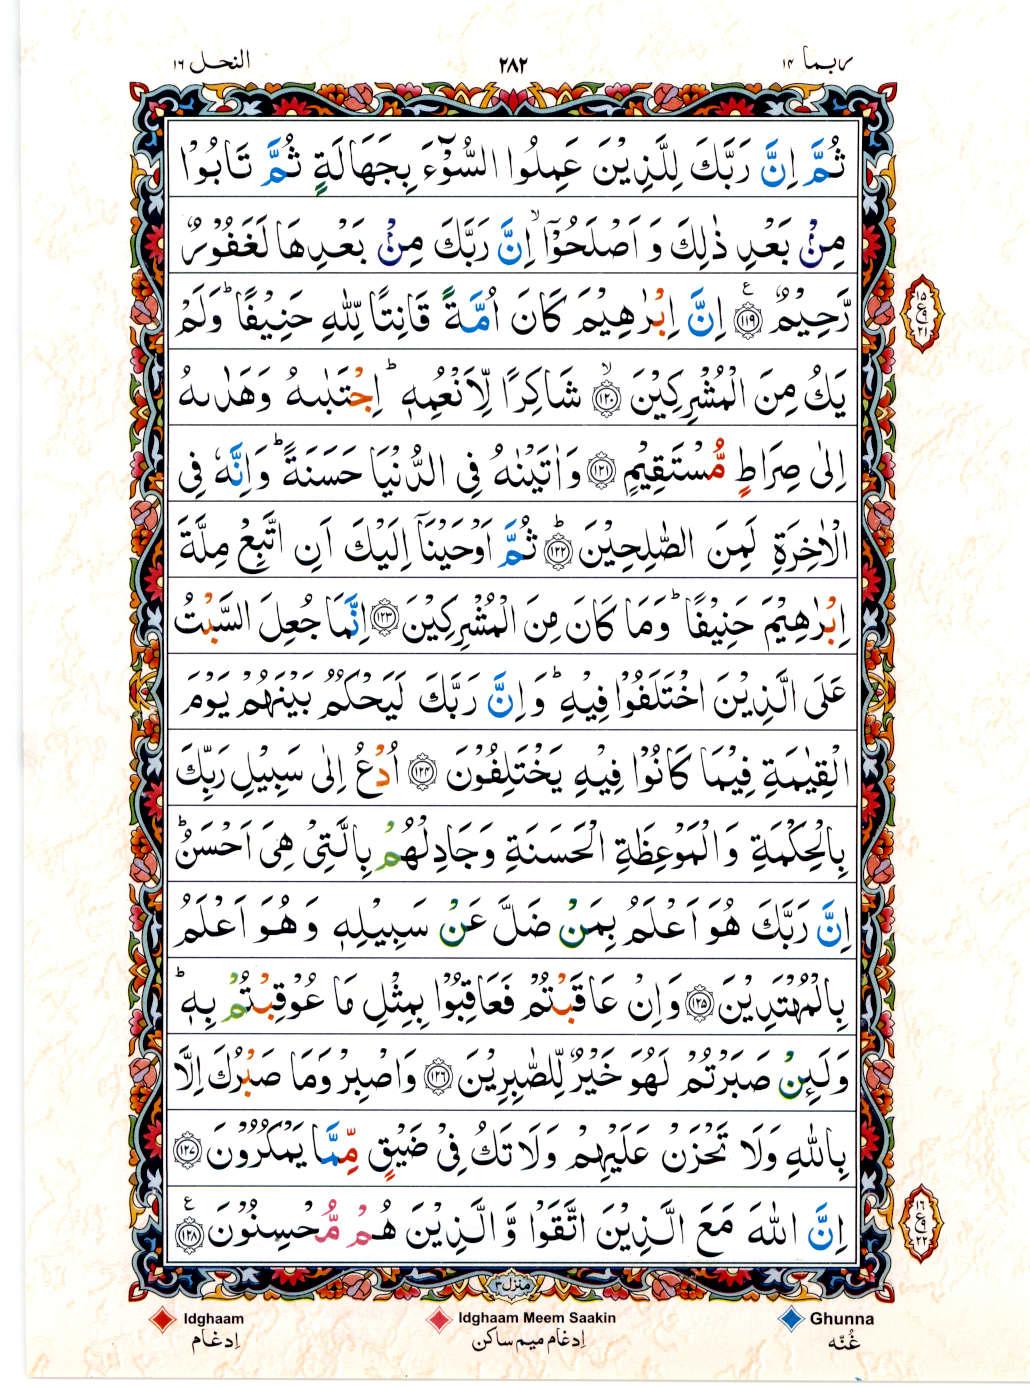 النحل ١٦
٢٨٢
ربما ١٤
ثُمَّ اِنَّ رَبَّكَ لِلَّذِيْنَ عَمِلُوا السُّوْٓءَ بِجَهَالَةٍ ثُمَّ تَابُوْا
مِنْۢ بَعْدِ ذٰلِكَ وَ اَصْلَحُوْۤا ۙ اِنَّ رَبَّكَ مِنْۢ بَعْدِهَا لَغَفُوْرٌ
رَّحِيْمٌ ﴿١١٩﴾ ع اِنَّ اِبْرٰهِيْمَ كَانَ اُمَّةً قَانِتًا لِّلّٰهِ حَنِيْفًا ؕ وَلَمْ
يَكُ مِنَ الْمُشْرِكِيْنَ ﴿١٢٠﴾ ۙ شَاكِرًا لِّاَنْعُمِهٖ ؕ اِجْتَبٰىهُ وَهَدٰىهُ
اِلٰى صِرَاطٍ مُّسْتَقِيْمٍ ﴿١٢١﴾ وَاٰتَيْنٰهُ فِى الدُّنْيَا حَسَنَةً ؕ وَاِنَّهٗ فِى
الْاٰخِرَةِ لَمِنَ الصّٰلِحِيْنَ ﴿١٢٢﴾ ؕ ثُمَّ اَوْحَيْنَاۤ اِلَيْكَ اَنِ اتَّبِعْ مِلَّةَ
اِبْرٰهِيْمَ حَنِيْفًا ؕ وَمَا كَانَ مِنَ الْمُشْرِكِيْنَ ﴿١٢٣﴾ اِنَّمَا جُعِلَ السَّبْتُ
عَلَى الَّذِيْنَ اخْتَلَفُوْا فِيْهِ ؕ وَاِنَّ رَبَّكَ لَيَحْكُمُ بَيْنَهُمْ يَوْمَ
الْقِيٰمَةِ فِيْمَا كَانُوْا فِيْهِ يَخْتَلِفُوْنَ ﴿١٢٤﴾ اُدْعُ اِلٰى سَبِيْلِ رَبِّكَ
بِالْحِكْمَةِ وَالْمَوْعِظَةِ الْحَسَنَةِ وَجَادِلْهُمْ بِالَّتِىْ هِىَ اَحْسَنُ ؕ
اِنَّ رَبَّكَ هُوَ اَعْلَمُ بِمَنْ ضَلَّ عَنْ سَبِيْلِهٖ وَهُوَ اَعْلَمُ
بِالْمُهْتَدِيْنَ ﴿١٢٥﴾ وَاِنْ عَاقَبْتُمْ فَعَاقِبُوْا بِمِثْلِ مَا عُوْقِبْتُمْ بِهٖ ؕ
وَلَىِٕنْ صَبَرْتُمْ لَهُوَ خَيْرٌ لِّلصّٰبِرِيْنَ ﴿١٢٦﴾ وَاصْبِرْ وَمَا صَبْرُكَ اِلَّا
بِاللّٰهِ وَلَا تَحْزَنْ عَلَيْهِمْ وَلَا تَكُ فِىْ ضَيْقٍ مِّمَّا يَمْكُرُوْنَ ﴿١٢٧﴾
اِنَّ اللّٰهَ مَعَ الَّذِيْنَ اتَّقَوْا وَّالَّذِيْنَ هُمْ مُّحْسِنُوْنَ ﴿١٢٨﴾ ع
١٥
ع
٢١
١٦
ع
٢٢
منزل ٣
Idghaam
اِدغام
Idghaam Meem Saakin
اِدغام ميم ساكن
Ghunna
غُنّه